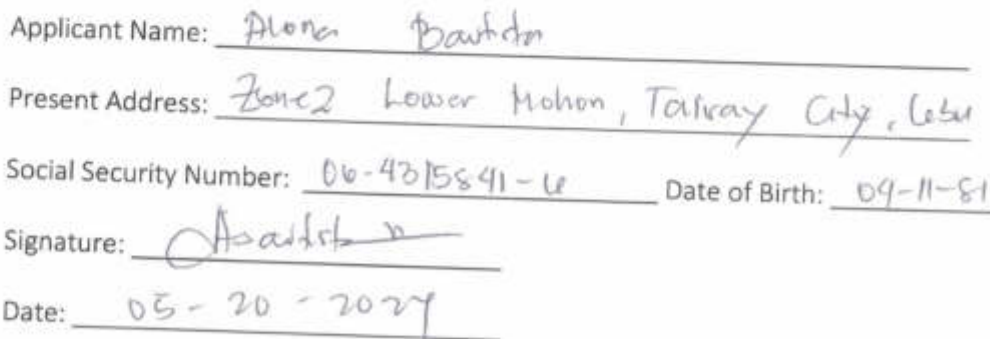 Applicant Name: Alona Bautista
Present Address: Zone 2 Lower Mohon, Talisay City, Cebu
Social Security Number: 06-4315841-6 Date of Birth: 09-11-81
Signature:
Date: 05-20-2024